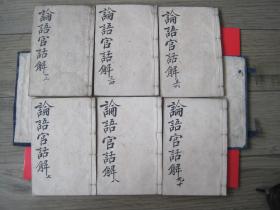 論語官話解
論語官話解
論語官話解
論語官話解
論語官話解 八
論語官話解